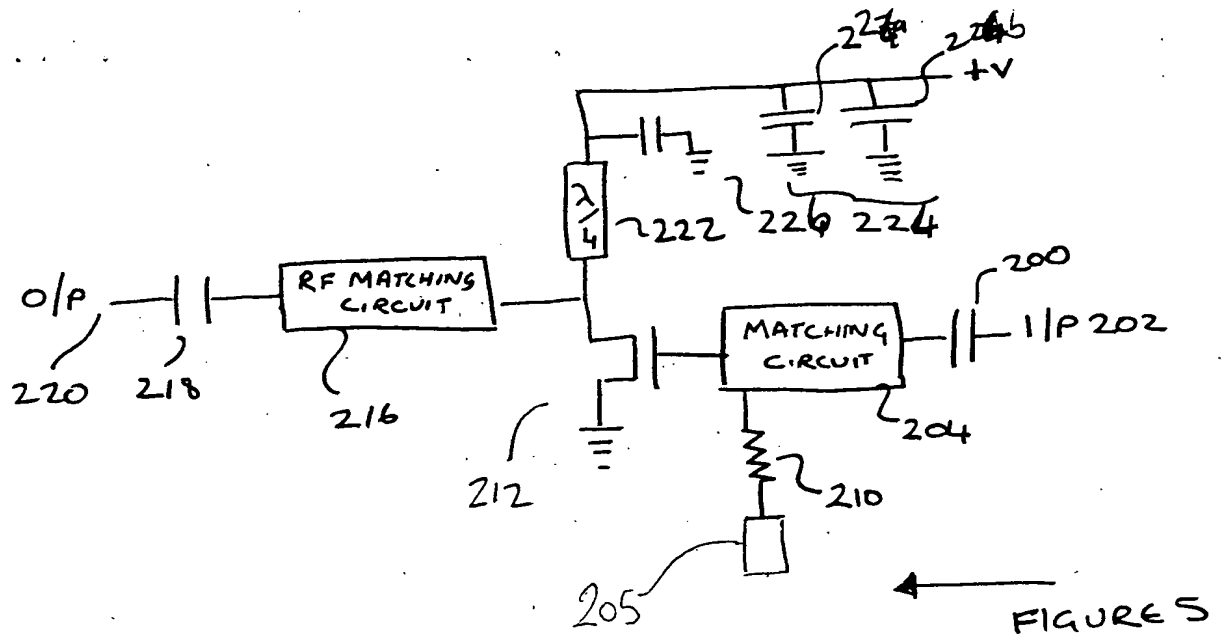 +V
λ/4
222
224
200
O/P
RF MATCHING
CIRCUIT
MATCHING
CIRCUIT
I/P 202
220
218
216
204
212
210
205
FIGURE 5